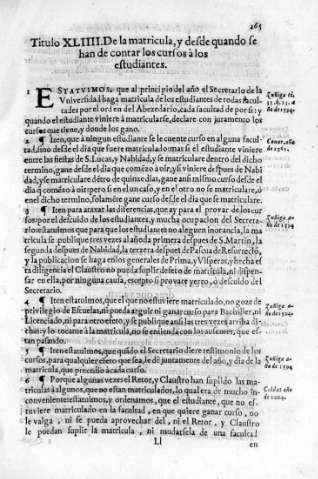 265
Titulo XLIIII. De la matricula, y desde quando se
han de contar los cursos à los
estudiantes.
1 ESTATVIMOS, que al principio del año el Secretario de la
Vniversidad haga matricula de los estudiantes de todas facul-
tades por el orden del Abecedario, cada facultad de por si: y
quando el estudiante viniere à matricularse, declare con juramento los
cursos que tiene, y donde los ganò.
2 ¶ Iten, que a ningun estudiante se le cuente curso en alguna facul-
tad, sino desde el dia que fuere matriculado: mas si el estudiante viniere
entre las fiestas de S. Lucas, y Nabidad, y se matriculare dentro del dicho
termino, gane desde el dia que comēço a oir, y si viniere despues de Nabi
dad, y se matriculare dētro de quinze dias, gane assi mismo curso desde el
dia q̄ comēço à oir: pero si en el un caso, y en el otro no se matriculare, ò
en el dicho termino, solamēte gane curso desde el dia que se matriculare.
3 ¶ Iten para atajar las diferencias, que ay para el provar de los cur
sos por el descuido de los estudiantes, y mucha ocupacion del Secreta-
rio: estatuimos que para que los estudiantes no aleguen inorancia, la ma
tricula se publique tres vezes al año la primera despues de S. Martin, la
segunda despues de Nabidad, la tercera despues de Pascua de Resurreciō,
y la publicacion se haga en los generales de Prima, y Visperas, y hecha es
ta diligencia el Claustro no pueda suplir defeto de matricula, ni dispen-
sar en ella, por ninguna causa, excepto si provare yerro, ò descuido del
Secretario.
4 ¶ Iten estatuimos, que el que no estuviere matriculado, no goze de
privilegio de Escuelas, ni pueda arguir ni ganar curso para Bachiller, ni
Licenciado, ni para otro efeto, y se publique assi las tres vezes arriba di-
chas: y lo tocante à la matricula, no se entienda con los ausentes, que es-
tan pasando.
5 ¶ Iten estatuimos, que quādo el Secretario diere testimonio de los
cursos, para qualquier efeto que sea, le dè juntamente del año, y dia de la
matricula, que precediò à cada curso.
6 ¶ Porque algunas vezes el Retor, y Claustro han suplido las ma-
triculas à algunos, que no estan matriculados, lo qual era de mucho in-
conveniente: estatuimos, y ordenamos, que el estudiante, que no es-
tuviere matriculado en la facultad, en que quiere ganar curso, no
le valga, ni se pueda aprovechar del, ni el Retor, y Claustro
le puedan suplir la matricula, ni mudarsela de una facultad
Ll
en